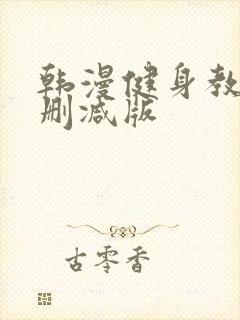 韩漫健身教
删减版
古零香